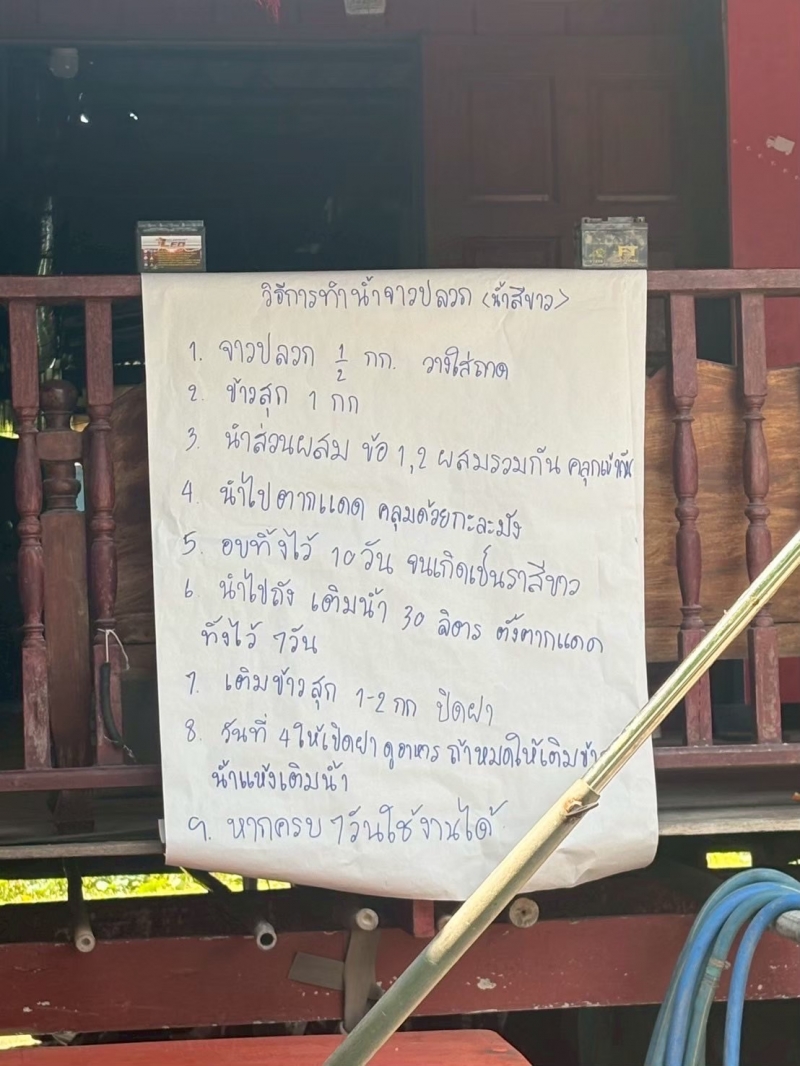 วิธีการทำน้ำจาวปลวก <น้ำสีขาว>
1. จาวปลวก 1/2 กก. วางใส่ถาด
2. ข้าวสุก 1 กก
3. นำส่วนผสม ข้อ 1,2 ผสมรวมกัน คลุกเข้ากัน
4. นำไปตากแดด คลุมด้วยกะละมัง
5. อบทิ้งไว้ 10 วัน จนเกิดเป็นราสีขาว
6. นำไปถัง เติมน้ำ 30 ลิตร ตั้งตากแดด
ทิ้งไว้ 7วัน
7. เติมข้าวสุก 1-2 กก ปิดฝา
8. วันที่ 4 ให้เปิดฝา ดูอาหาร ถ้าหมดให้เติม
น้ำแห้งเติมน้ำ
9. หากครบ 7วันใช้งานได้
FT